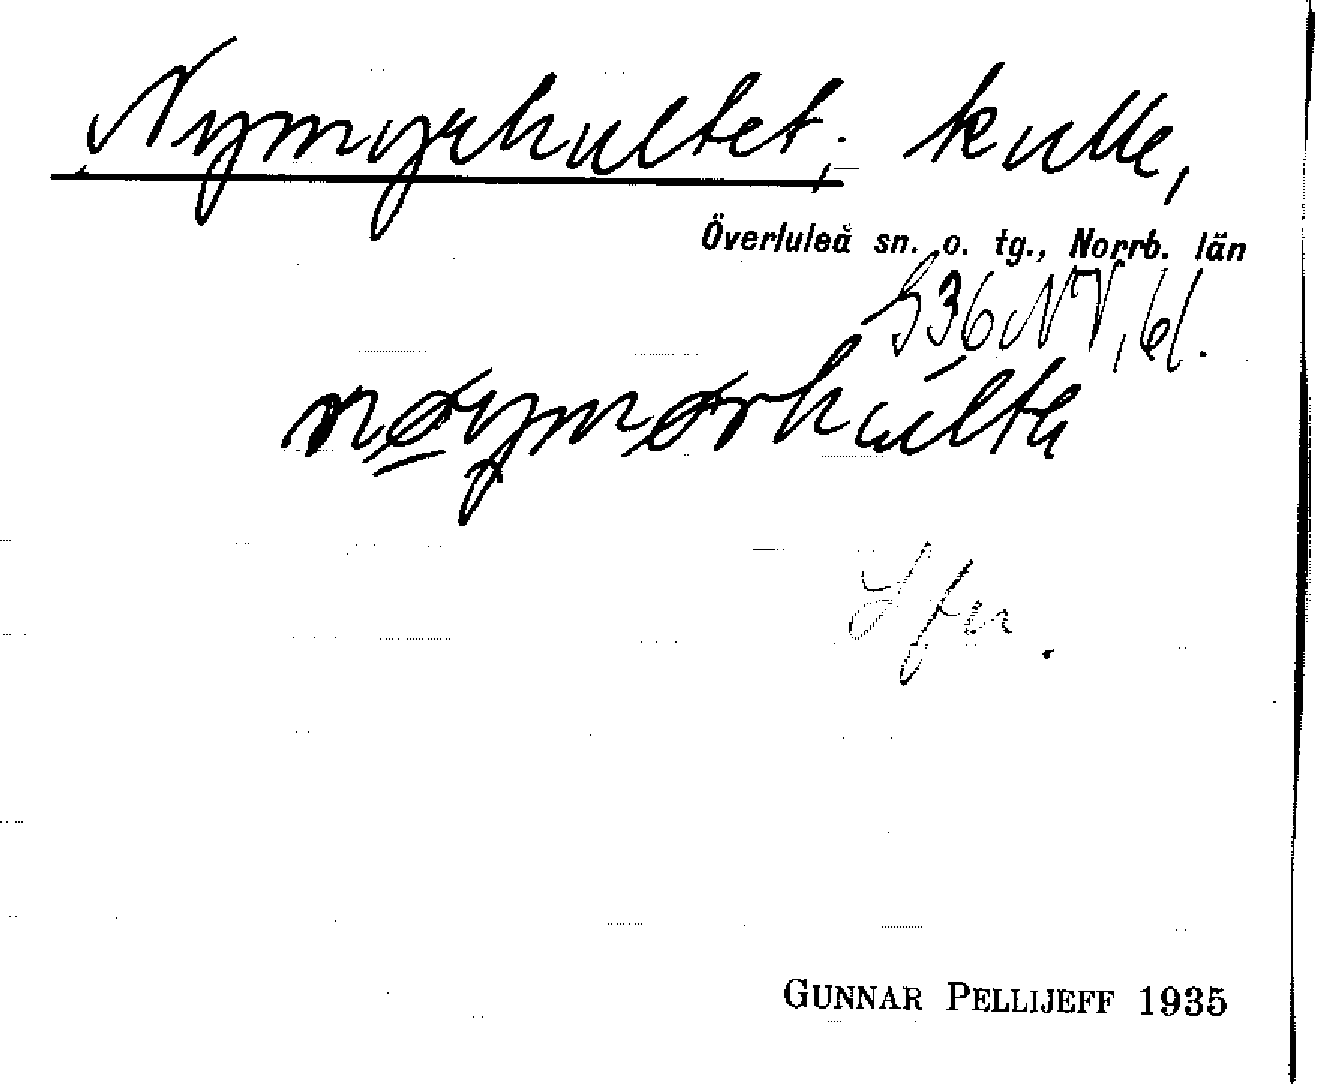 Nymyrhultet, kulle,
Överluleå sn. o. tg., Norrb. län
S36NV, bl.
nøymørhu̍lta
GUNNAR PELLIJEFF 1935